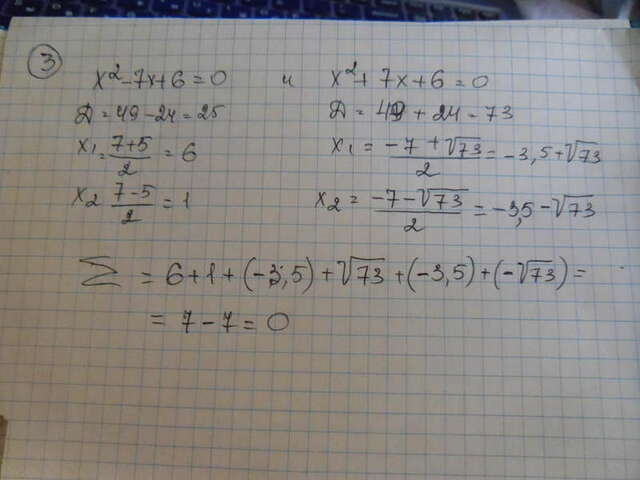 3
x²-7x+6=0 и x²+7x+6=0
Д=49-24=25 Д=49+24=73
x₁=(7+5)/2=6 x₁=(-7+√73)/2=-3,5+√73
x₂ (7-5)/2=1 x₂=(-7-√73)/2=-3,5-√73
Σ=6+1+(-3,5)+√73+(-3,5)+(-√73)=
=7-7=0